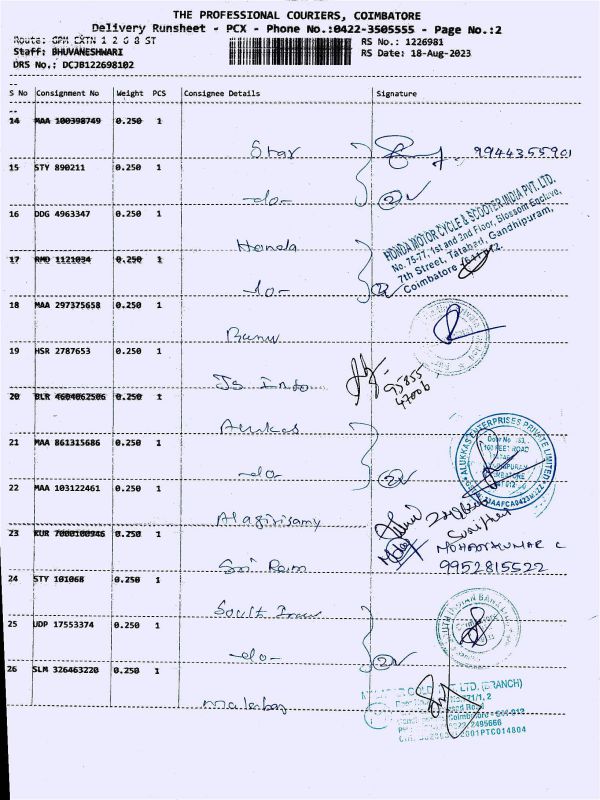 THE PROFESSIONAL COURIERS, COIMBATORE
Delivery Runsheet - PCX - Phone No.:0422-3505555 - Page No.:2
Route: GPM EXTN 1 2 G 8 ST
RS No.: 1226981
Staff: BHUVANESHWARI
RS Date: 18-Aug-2023
DRS No.: DCJB122698102
S No Consignment No Weight PCS Consignee Details Signature
14 MAA 100398749 0.250 1
Star
9944355901
15 STY 890211 0.250 1
-do- 2
16 DDG 4963347 0.250 1
Honda
HONDA MOTOR CYCLE & SCOOTER INDIA PVT. LTD.
No. 75-77, 1st and 2nd Floor, Blossom Enclave,
7th Street, Tatabad, Gandhipuram,
Coimbatore
17 RMD 1121034 0.250 1
-do- 2
18 MAA 297375658 0.250 1
Banu
19 HSR 2787653 0.250 1
Js Indo
95855
47006
20 BLR 4604062506 0.250 1
Alukas
ALUKKAS ENTERPRISES PRIVATE LIMITED
21 MAA 861315686 0.250 1
-do- 2
22 MAA 103122461 0.250 1
Alagirisamy
23 KUR 7000100946 0.250 1
Sri Ram
MOHANAKUMAR C
9952815522
24 STY 101068 0.250 1
South Indian
SOUTH INDIAN BANK
25 UDP 17553374 0.250 1
-do- 2
26 SLM 326463220 0.250 1
Malabar
GOLD PVT. LTD. (BRANCH)
Coimbatore - 641 012
2495666
2001PTC014804